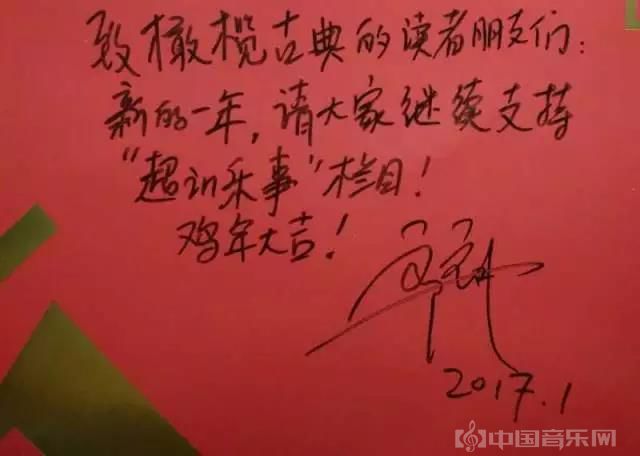 致橄榄古典的读者朋友们:
新的一年,请大家继续支持
“超训乐事”栏目!
鸡年大吉!
2017.1
中国音乐网